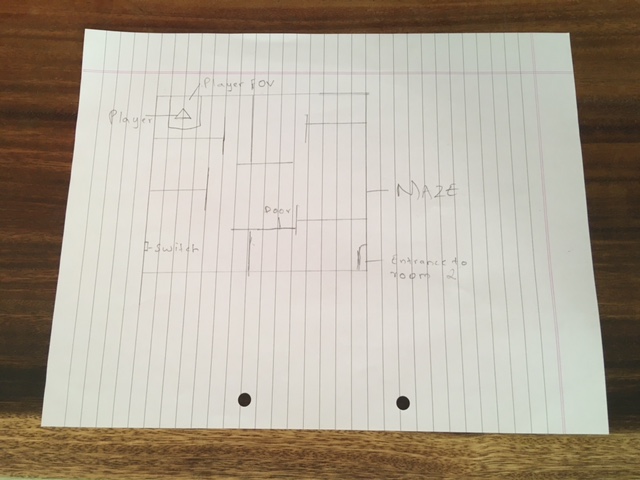 Player
Player FOV
J-Switch
Door
MAZE
Entrance to
room 2